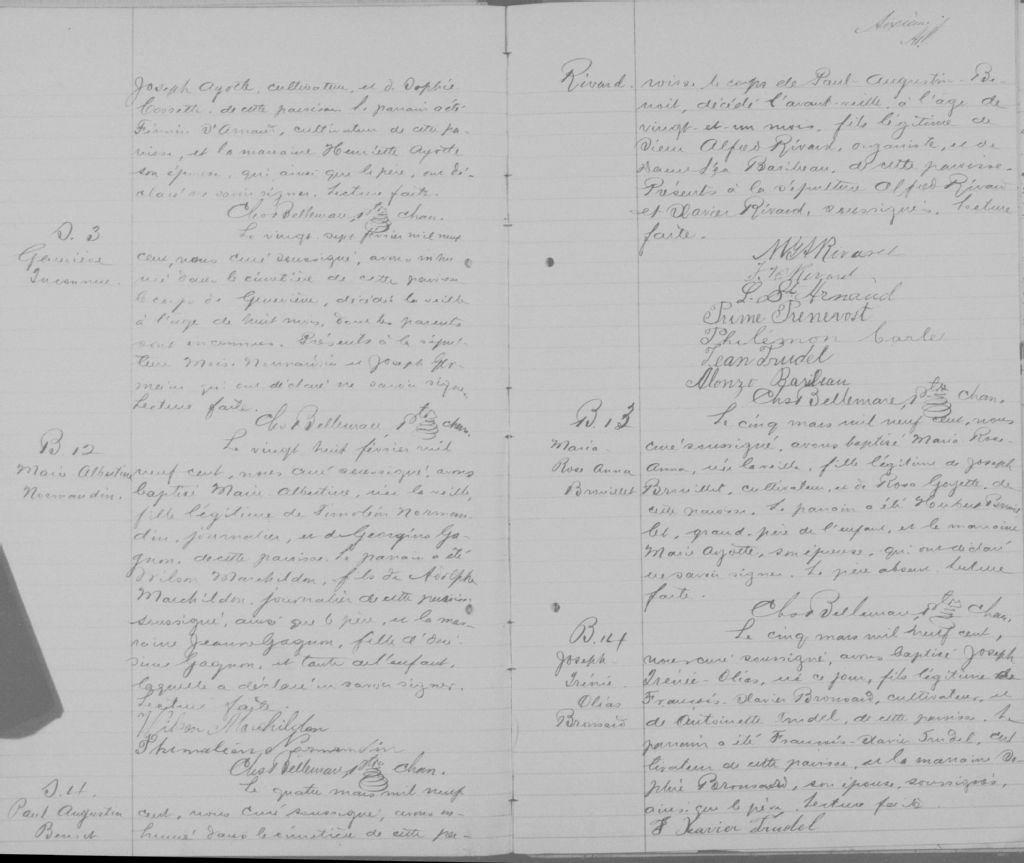 Joseph Ayotte, cultivateur, et de Sophie
Cossette de cette paroisse. Le parrain a été
Firmin St Arnaud, cultivateur de cette pa-
roisse, et la marraine Henriette Ayotte
son épouse, qui ainsi que le père, ont dé-
claré ne savoir signer. Lecture faite.
Chs Bellemare, Ptre chan.
S. 3
Geneviève
Inconnue.
Le vingt sept février mil neuf
cent, nous curé soussigné, avons inhu
mé dans le cimetière de cette paroisse
le corps de Geneviève, décédée la veille
à l'âge de huit mois, dont les parents
sont inconnus. Présents à la sépul-
ture Normandin et Joseph Ger-
main qui ont déclaré ne savoir signer
Lecture faite.
Chs Bellemare Ptre chan.
B 12
Marie Albertine
Normandin.
Le vingt huit février mil
neuf cent, nous curé soussigné, avons
baptisé Marie Albertine, née la veille,
fille légitime de Timoléon Norman-
din, journalier, et de Georgina Ga-
gnon, de cette paroisse. Le parrain a été
Wilson Marchildon, fils de Adolphe
Marchildon, journalier de cette paroisse
soussigné, ainsi que le père, et la mar-
raine Jeanne Gagnon, fille d'Oné-
sime Gagnon, et tante de l'enfant,
laquelle a déclaré ne savoir signer.
Lecture faite.
Wilson Marchildon
Thimoléon Normandin
Chs Bellemare, Ptre chan.
S. 4.
Paul Augustin
Benoit
Le quatre mars mil neuf
cent, nous curé soussigné, avons in-
humé dans le cimetière de cette pa-
Sixième
Rivard.
roisse, le corps de Paul-Augustin-Be-
noit, décédé l'avant-veille, à l'âge de
vingt-et-un mois, fils légitime de
Sieur Alfred Rivard, organiste, et de
Dame Léa Baribeau, de cette paroisse.
Présents à la sépulture Alfred Rivard
et Xavier Rivard, soussignés. Lecture
faite.
Rivard
Rivard
L. St Arnaud
Prime Prenevost
Philémon Carle
Jean Trudel
Alonzo Baribeau
Chs Bellemare, Ptre chan.
B. 13
Marie
Rose Anna
Brouillet
Le cinq mars mil neuf cent, nous
curé soussigné, avons baptisé Marie Rose
Anna, née la veille, fille légitime de Joseph
Brouillet, cultivateur, et de Rosa Goyette, de
cette paroisse. Le parrain a été Hubert Brouil
let, grand-père de l'enfant, et la marraine
Marie Ayotte, son épouse, qui ont déclaré
ne savoir signer. Le père absent. Lecture
faite.
Chs Bellemare, Ptre chan.
B. 14
Joseph
Irénée
Olias
Brousard
Le cinq mars mil neuf cent,
nous curé soussigné, avons baptisé Joseph
Irénée-Olias, né ce jour, fils légitime de
François-Xavier Broussard, cultivateur, et
de Antoinette Trudel, de cette paroisse. Le
parrain a été François-Xavier Trudel, cul
tivateur de cette paroisse, et la marraine So-
phie Broussard, son épouse, soussignés,
ainsi que le père. Lecture faite.
F Xavier Trudel